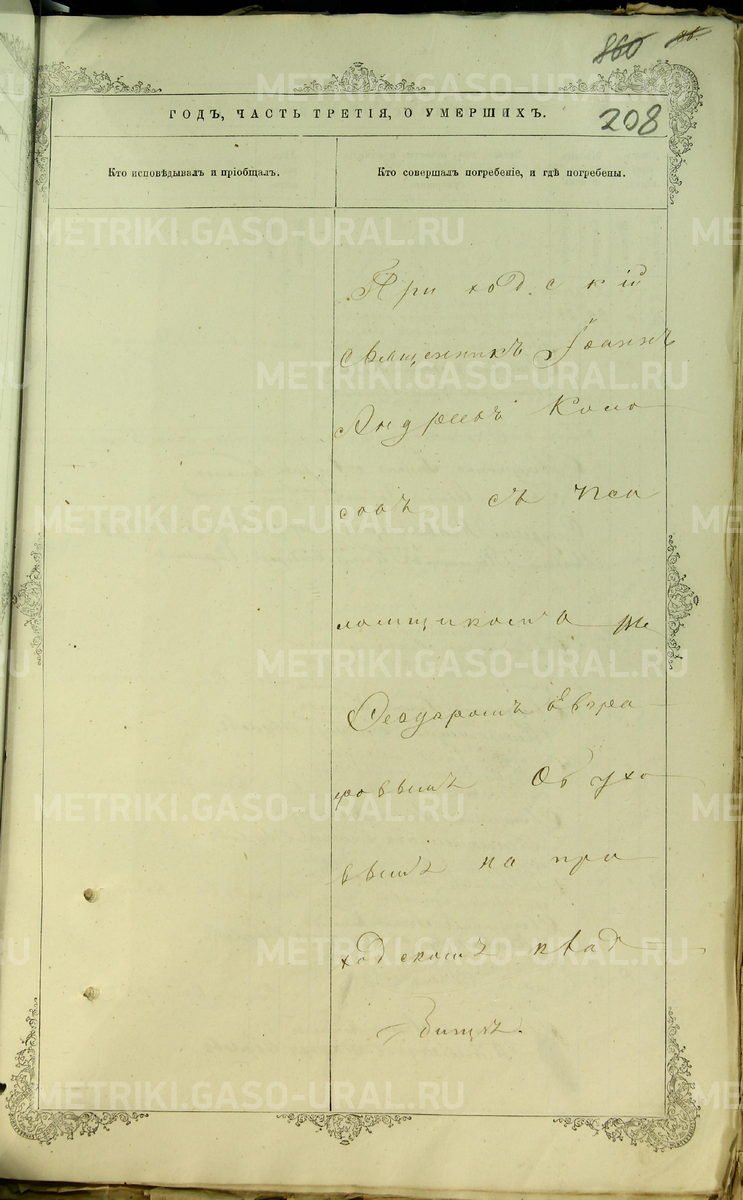 860
208
ГОДЪ, ЧАСТЬ ТРЕТІЯ, О УМЕРШИХЪ.
Кто исповѣдывалъ и пріобщалъ.
Кто совершалъ погребеніе, и гдѣ погребены.
Приходскій
священникъ Іоаннъ
Андреевъ Коло
совъ съ пса
ломщикомъ
Ѳеодоромъ
Обухо
вымъ на при
ходскомъ клад
бищѣ.
METRIKI.GASO-URAL.RU